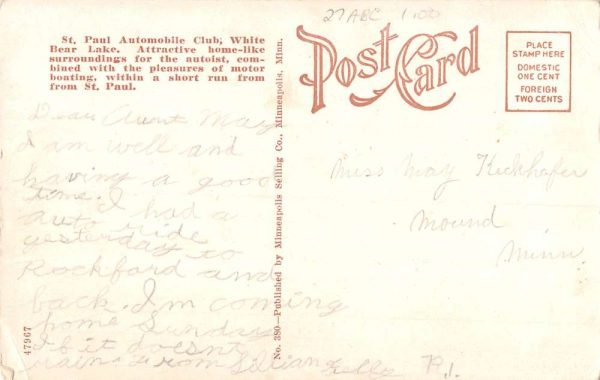 27 ABC 1.00
St. Paul Automobile Club, White
Bear Lake. Attractive home-like
surroundings for the autoist, com-
bined with the pleasures of motor
boating, within a short run from
from St. Paul.
Post Card
PLACE
STAMP HERE
DOMESTIC
ONE CENT
FOREIGN
TWO CENTS
Dear Aunt May
I am well and
having a good
time. I had a
auto ride
yesterday to
Rockford and
back. I'm coming
home Sunday
if it doesnt
rain. From Lillian
No. 380—Published by Minneapolis Selling Co., Minneapolis, Minn.
Miss May Keckhafer
Mound
Minn
47967